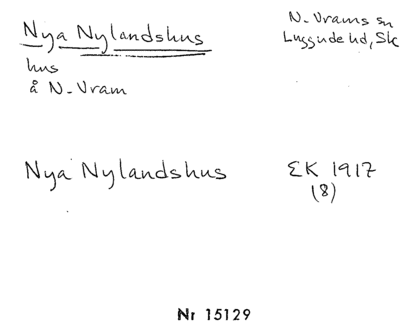 Nya Nylandshus
hus
å N. Vram
N. Vrams sn
Luggude hd, Sk
Nya Nylandshus
EK 1917
(8)
Nr 15129